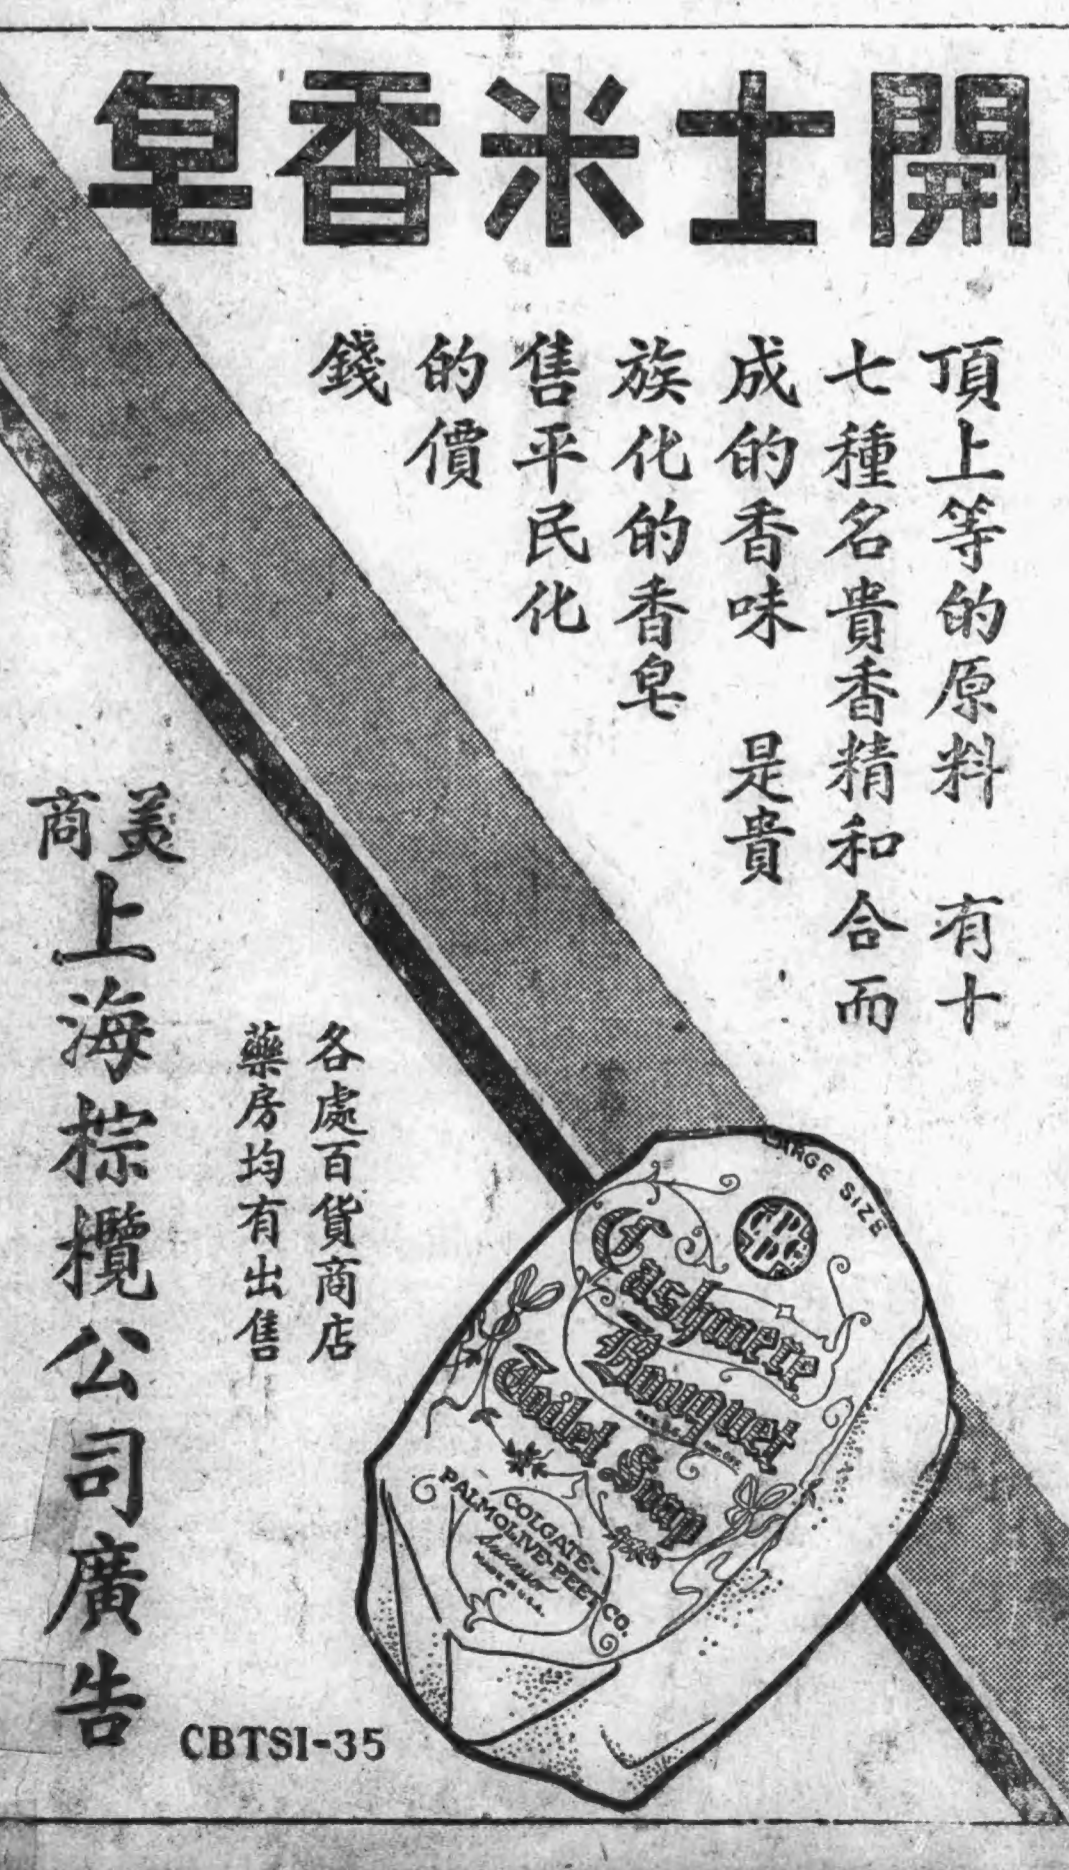 開士米香皂
頂上等的原料 有十
七種名貴香精和合而
成的香味 是貴
族化的香皂
售平民化
的價
錢
各處百貨商店
藥房均有出售
美商
上海棕欖公司廣告
LARGE SIZE
Cashmere
Bouquet
Toilet Soap
COLGATE-
PALMOLIVE-PEET CO.
CBTSI-35